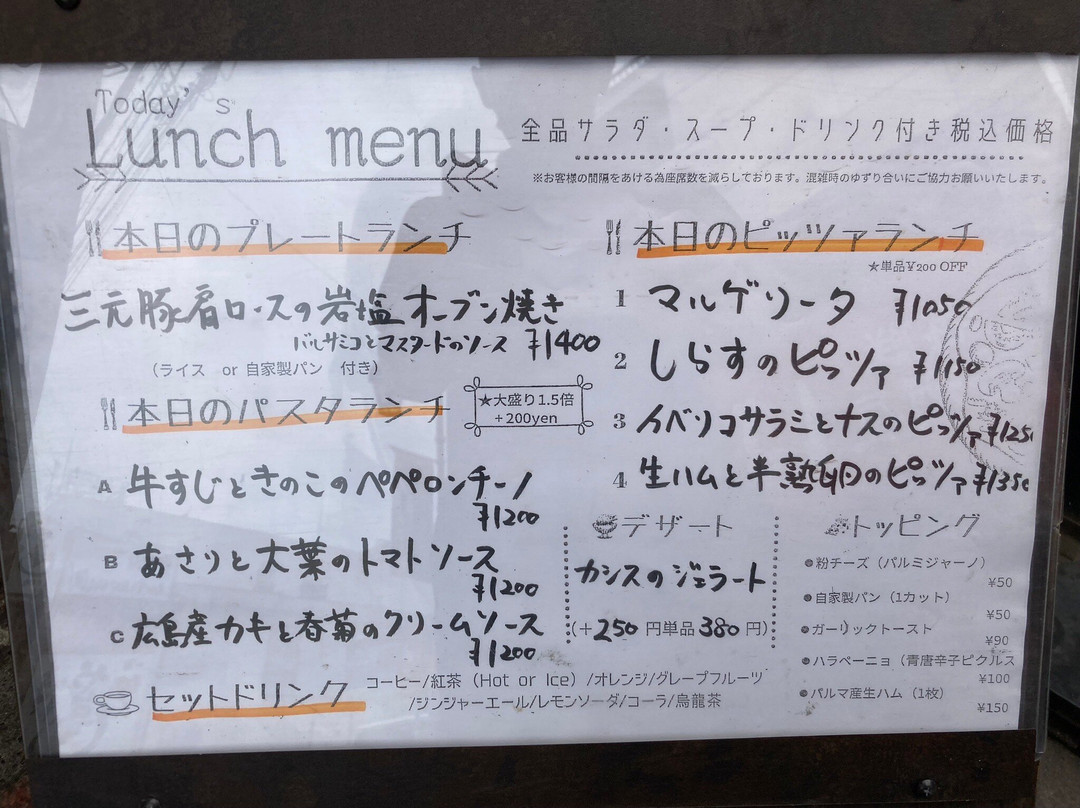 Today's
Lunch menu
全品サラダ・スープ・ドリンク付き税込価格
※お客様の間隔をあける為座席数を減らしております。混雑時のゆずり合いにご協力お願いいたします。
本日のプレートランチ
三元豚肩ロースの岩塩オーブン焼き
バルサミコとマスタードのソース ¥1400
（ライス or 自家製パン 付き）
本日のパスタランチ
★大盛り1.5倍
+200yen
A 牛すじときのこのペペロンチーノ
¥1200
B あさりと大葉のトマトソース
¥1200
C 広島産カキと春菊のクリームソース
¥1200
セットドリンク
コーヒー/紅茶（Hot or Ice）/オレンジ/グレープフルーツ
/ジンジャーエール/レモンソーダ/コーラ/烏龍茶
本日のピッツァランチ
★単品¥200 OFF
1 マルゲリータ ¥1050
2 しらすのピッツァ ¥1150
3 イベリコサラミとナスのピッツァ ¥125
4 生ハムと半熟卵のピッツァ ¥1350
デザート
カシスのジェラート
(+250円単品380円)
トッピング
●粉チーズ（パルミジャーノ）
¥50
●自家製パン（1カット）
¥50
●ガーリックトースト
¥90
●ハラペーニョ（青唐辛子ピクルス
¥100
●パルマ産生ハム（1枚）
¥150